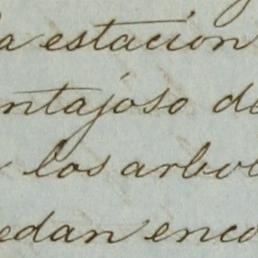 a estacion
ntajoso de
los arbol
edan enco